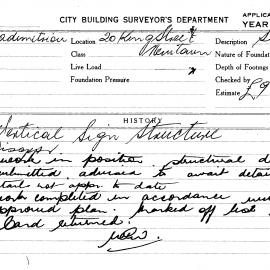 CITY BUILDING SURVEYOR'S DEPARTMENT
APPLICA
YEAR
Location 20 King Street
Description S
Class Newtown
Nature of Founda
Live Load
Depth of Footings
Foundation Pressure
Checked by
Estimate £9
HISTORY
Vertical Sign Structure
work in position, structural d
submitted, advised to await detai
not appr. to date
work completed in accordance
approved plan. Marked off list.
Card returned.